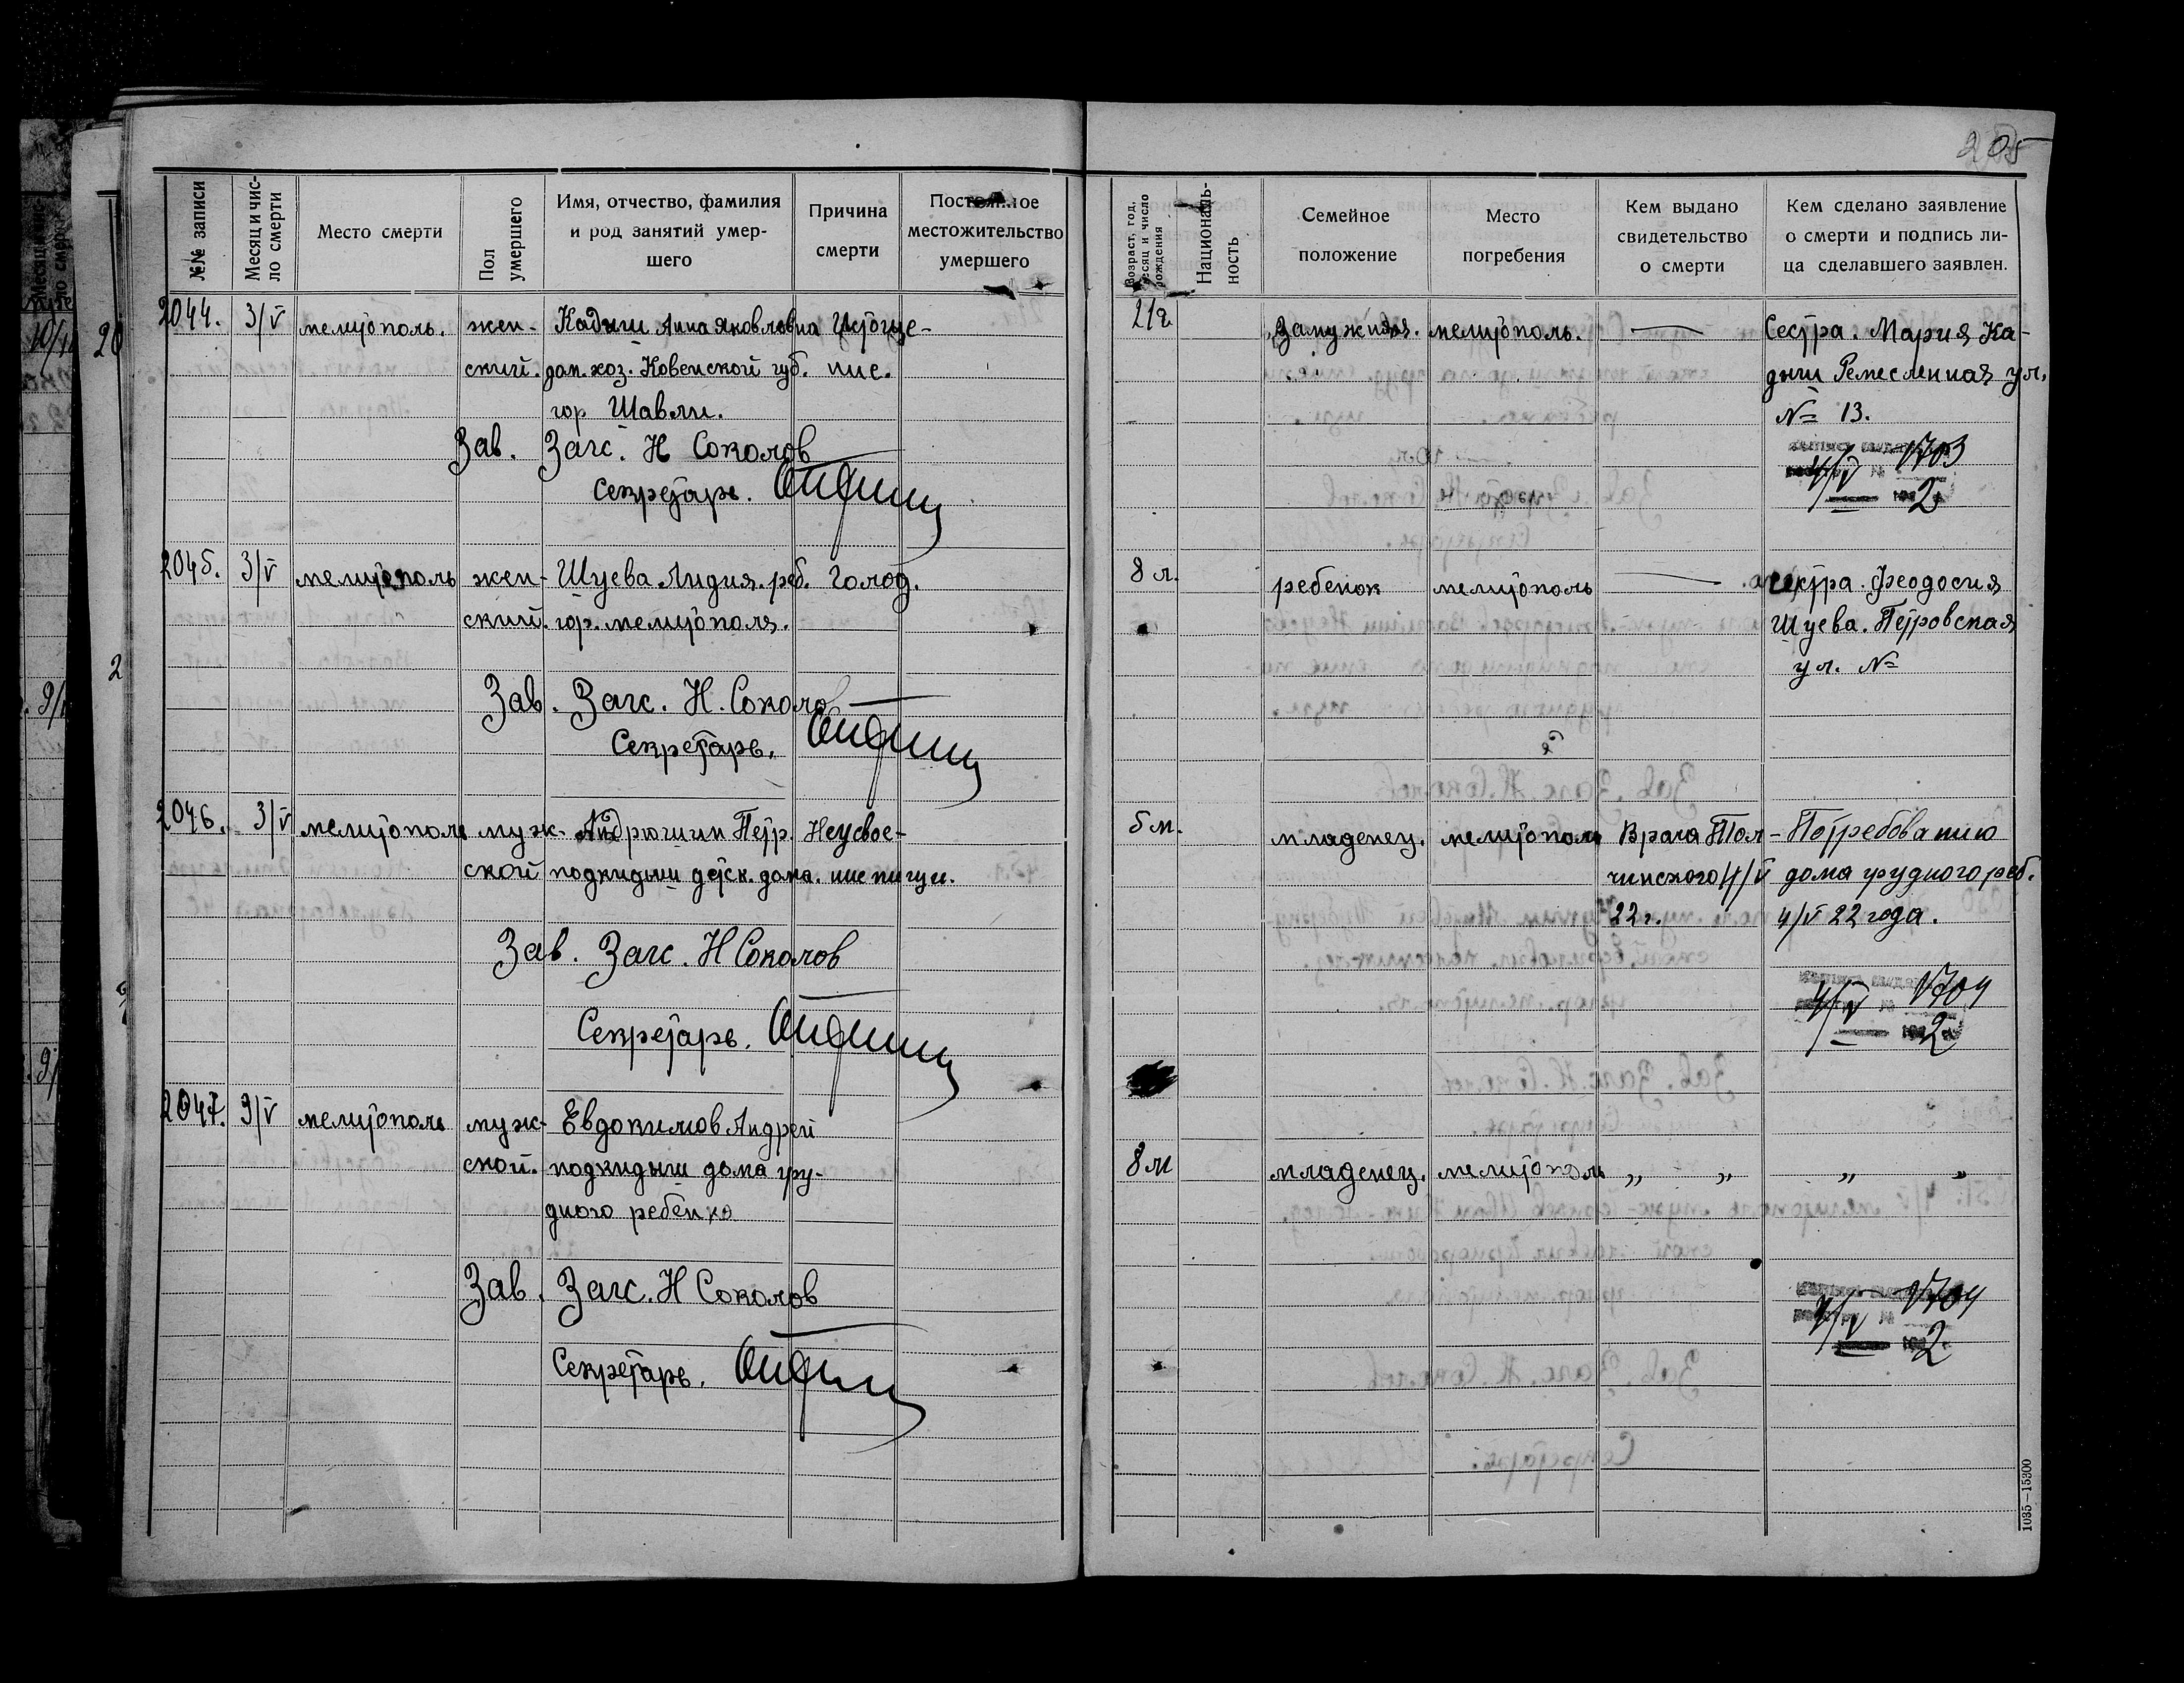 205
№№ записи
Месяц и чис-
ло смерти
Место смерти
Пол
умершего
Имя, отчество, фамилия
и род занятий умер-
шего
Причина
смерти
Постоянное
местожительство
умершего
Возраст, год,
месяц и число
рождения
Националь-
ность
Семейное
положение
Место
погребения
Кем выдано
свидетельство
о смерти
Кем сделано заявление
о смерти и подпись ли-
ца сделавшего заявлен.
2044. 3/V мелитополь. жен- Кадыш Анна Яковлевна Истоще- 21г. Замужняя. мелитополь. — Сестра. Мария Ка-
ский. дом. хоз. Ковенской губ. ние. дыш Ремесленная ул.
гор Шавли. № 13.
Зав. Загс. Н Соколов
Секретарь.
4/V 1703
2
2045. 3/V мелитополь жен- Шуева Лидия. реб. Голод. 8 л. ребенок мелитополь — сестра. Феодосия
ский. гор. мелитополя. Шуева. Петровская
ул. №
Зав. Загс. Н. Соколов
Секретарь.
2046. 3/V мелитополь муж- Андрюшин Петр. Неусвое- 5 м. младенец. мелитополь Врача Тол- По требованию
ской подкидыш детск. дома. ние пищи. чинского 4/V дома грудного реб.
22 г. 4/V 22 года.
Зав. Загс. Н Соколов
Секретарь.
4/V 1704
2
2047. 3/V мелитополь муж- Евдокимов Андрей
ской. подкидыш дома гру- 8 м младенец. мелитополь „ „ „ „
дного ребенка
Зав. Загс. Н Соколов
Секретарь.
4/V 1704
2
1035—15300